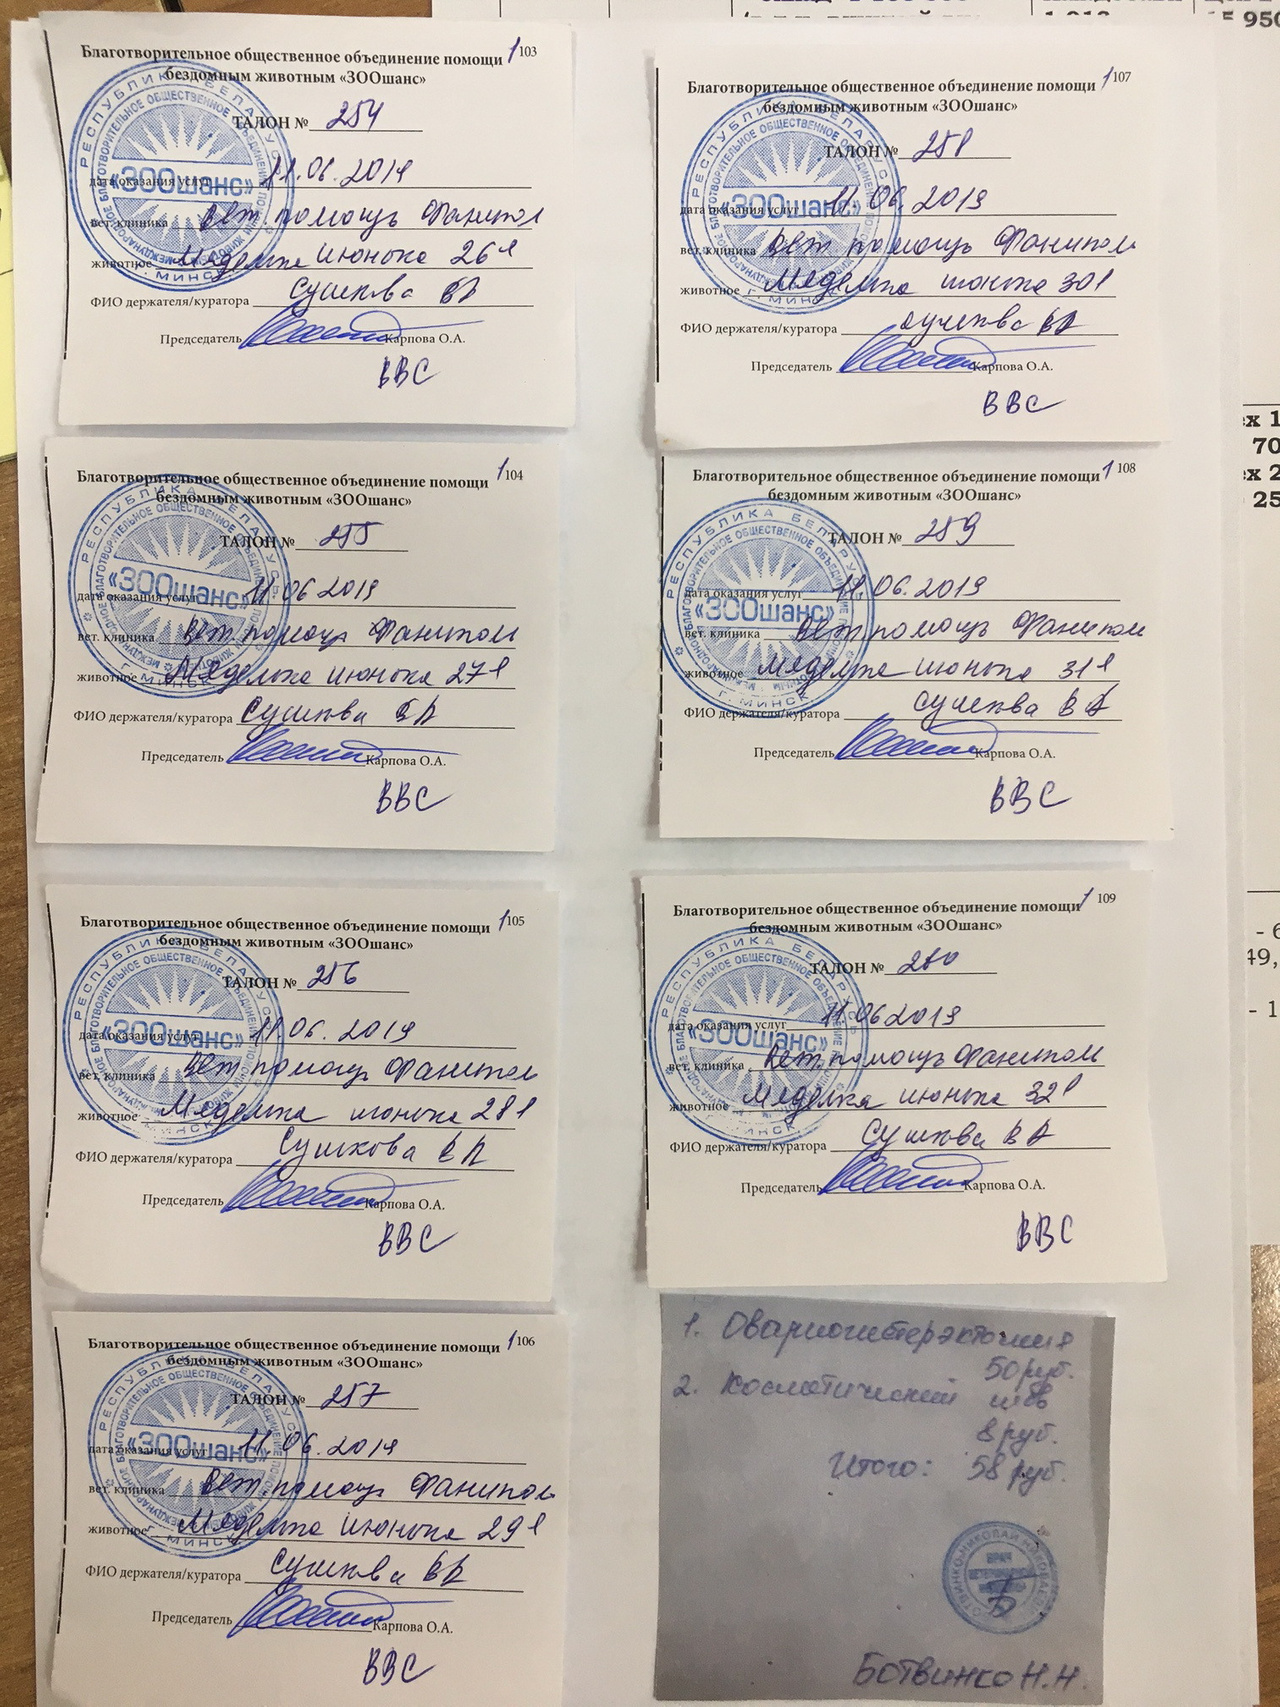 Благотворительное общественное объединение помощи 1 103
бездомным животным «ЗООшанс»
ТАЛОН № 254
дата оказания услуг 11.06.2019
вет. клиника Вет. помощь Фанипол
животное июнька 26
ФИО держателя/куратора Сушкова ВА
Председатель Карпова О.А.
ВВС
РЕСПУБЛИКА БЕЛАРУСЬ
«ЗООшанс»
Г. МИНСК
Благотворительное общественное объединение помощи 1 104
бездомным животным «ЗООшанс»
ТАЛОН № 255
дата оказания услуг 11.06 2019
вет. клиника Вет. помощь Фанипол
животное июнька 27
ФИО держателя/куратора Сушкова ВА
Председатель Карпова О.А.
ВВС
РЕСПУБЛИКА БЕЛАРУСЬ
«ЗООшанс»
Г. МИНСК
Благотворительное общественное объединение помощи 1 105
бездомным животным «ЗООшанс»
ТАЛОН № 256
дата оказания услуг 11.06. 2019
вет. клиника Вет помощь Фанипол
животное июнька 28
ФИО держателя/куратора Сушкова ВА
Председатель Карпова О.А.
ВВС
РЕСПУБЛИКА БЕЛАРУСЬ
«ЗООшанс»
Г. МИНСК
Благотворительное общественное объединение помощи 1 106
бездомным животным «ЗООшанс»
ТАЛОН № 257
дата оказания услуг 11.06. 2019
вет. клиника Вет. помощь Фанипол
животное июнька 29
ФИО держателя/куратора Сушкова ВА
Председатель Карпова О.А.
ВВС
РЕСПУБЛИКА БЕЛАРУСЬ
«ЗООшанс»
Г. МИНСК
Благотворительное общественное объединение помощи 1 107
бездомным животным «ЗООшанс»
ТАЛОН № 258
дата оказания услуг 11.06.2019
вет. клиника Вет помощь Фанипол
животное июнька 30
ФИО держателя/куратора Сушкова ВА
Председатель Карпова О.А.
ВВС
РЕСПУБЛИКА БЕЛАРУСЬ
«ЗООшанс»
Г. МИНСК
Благотворительное общественное объединение помощи 1 108
бездомным животным «ЗООшанс»
ТАЛОН № 259
дата оказания услуг 11.06.2019
вет. клиника Вет помощь Фанипол
животное июнька 31
ФИО держателя/куратора Сушкова ВА
Председатель Карпова О.А.
ВВС
РЕСПУБЛИКА БЕЛАРУСЬ
«ЗООшанс»
Г. МИНСК
Благотворительное общественное объединение помощи 1 109
бездомным животным «ЗООшанс»
ТАЛОН № 260
дата оказания услуг 11.06 2019
вет. клиника Вет. помощь Фанипол
животное июнька 32
ФИО держателя/куратора Сушкова ВА
Председатель Карпова О.А.
ВВС
РЕСПУБЛИКА БЕЛАРУСЬ
«ЗООшанс»
Г. МИНСК
1. Овариогистерэктомия
50 руб.
2. Косметический шов
8 руб.
Итого: 58 руб.
ВРАЧ
Ботвинко Н.Н.